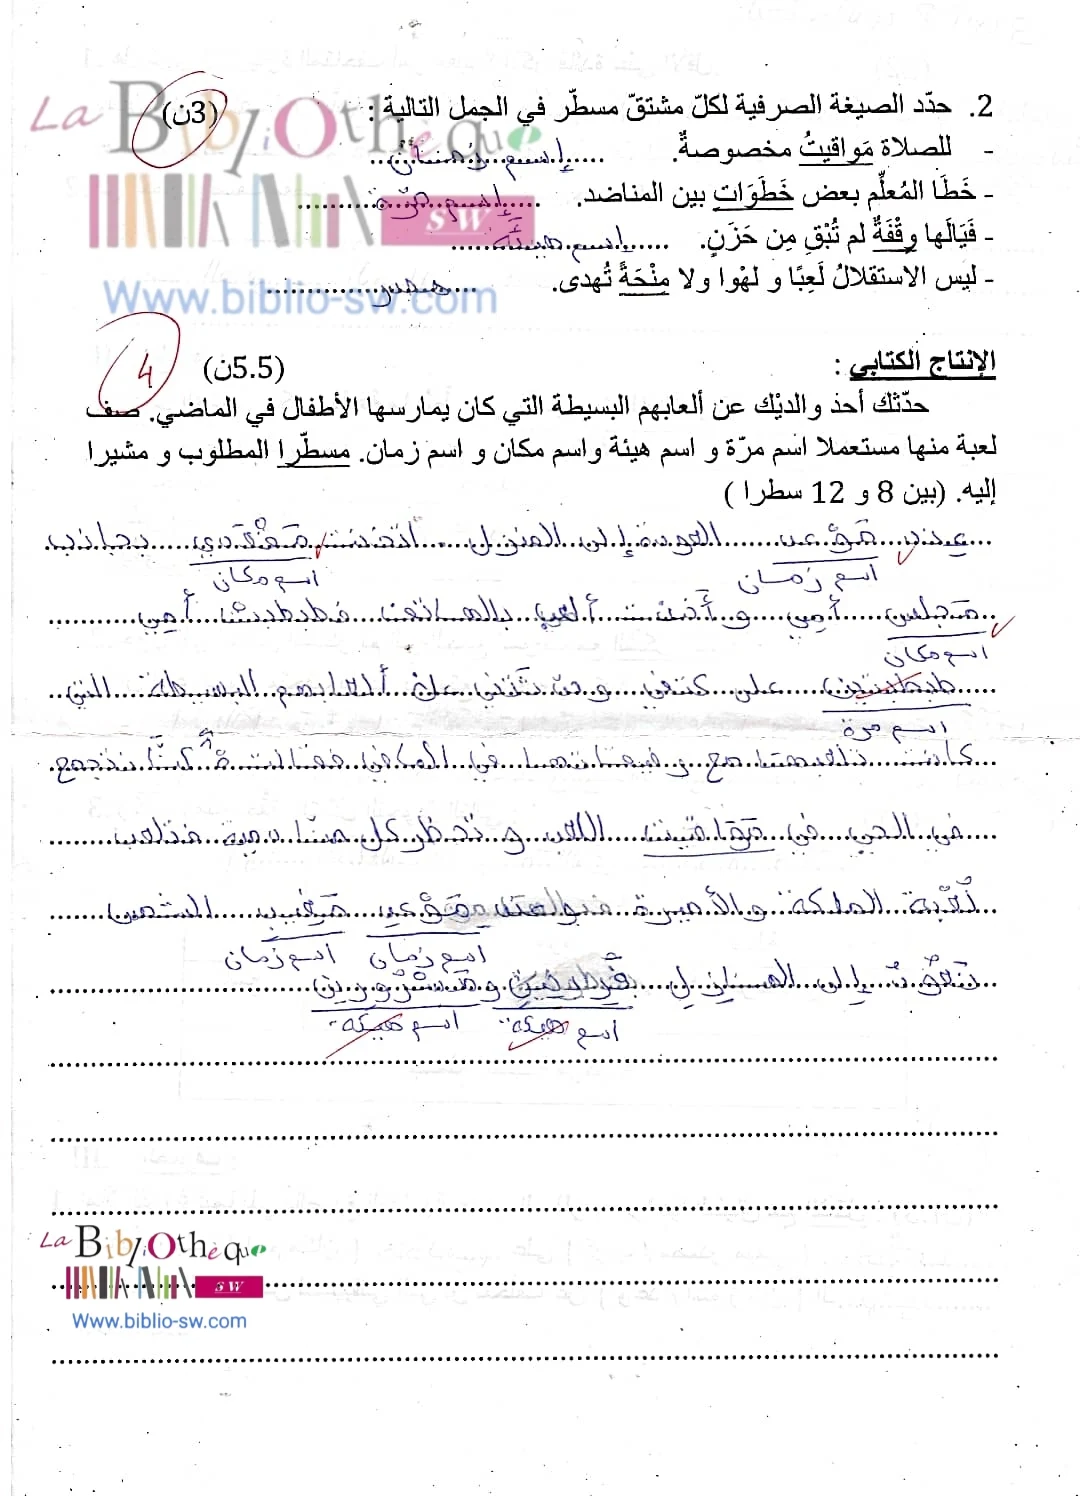 2. حدّد الصيغة الصرفية لكلّ مشتقّ مسطّر في الجمل التالية : (3ن)
La BiBliOtheque
- للصلاة مَوَاقيتُ مخصوصةٌ. .....إسم زمان..
- خَطَا المُعلِّم بعض خَطَوَاتٍ بين المناضد. .....إسم مرّة.........
SW
- فَيَالَها وِقْفَةٌ لم تُبْقِ مِن حَزَنٍ. ......إسم هيئة......
- ليس الاستقلالُ لَعِبًا و لهْوا ولا مِنْحَةً تُهدى. .....مصدر.........
Www.biblio-sw.com
الإنتاج الكتابي : (5.5ن) 4
حدّثك أحد والديْك عن ألعابهم البسيطة التي كان يمارسها الأطفال في الماضي. صف
لعبة منها مستعملا اسم مرّة و اسم هيئة واسم مكان و اسم زمان. مسطّرا المطلوب و مشيرا
إليه. (بين 8 و 12 سطرا )
عند مَوْعد العودة إلى المنزل اتخذت مَقْعَدي بجانب
اسم زمان اسم مكان
مَجلس أمي و أخذت ألعب بالهاتف فطبطبت أمي
اسم مكان
طبطبتين على كتفي وحدّثتني عن ألعابهم البسيطة التي
اسم مرة
كانت تلعبها مع رفيقاتها في الماضي فقالت كنّا نتجمع
في الحي في مَواقيت اللعب و تحظر كل منّا دمية فنلعب
لُعْبة الملكة والأميرة مَوْعد مَغيب الشمس
اسم زمان اسم زمان
نَعُودُ إلى المنازل
اسم هيئة اسم هيئة
La BiBliOtheque
SW
Www.biblio-sw.com